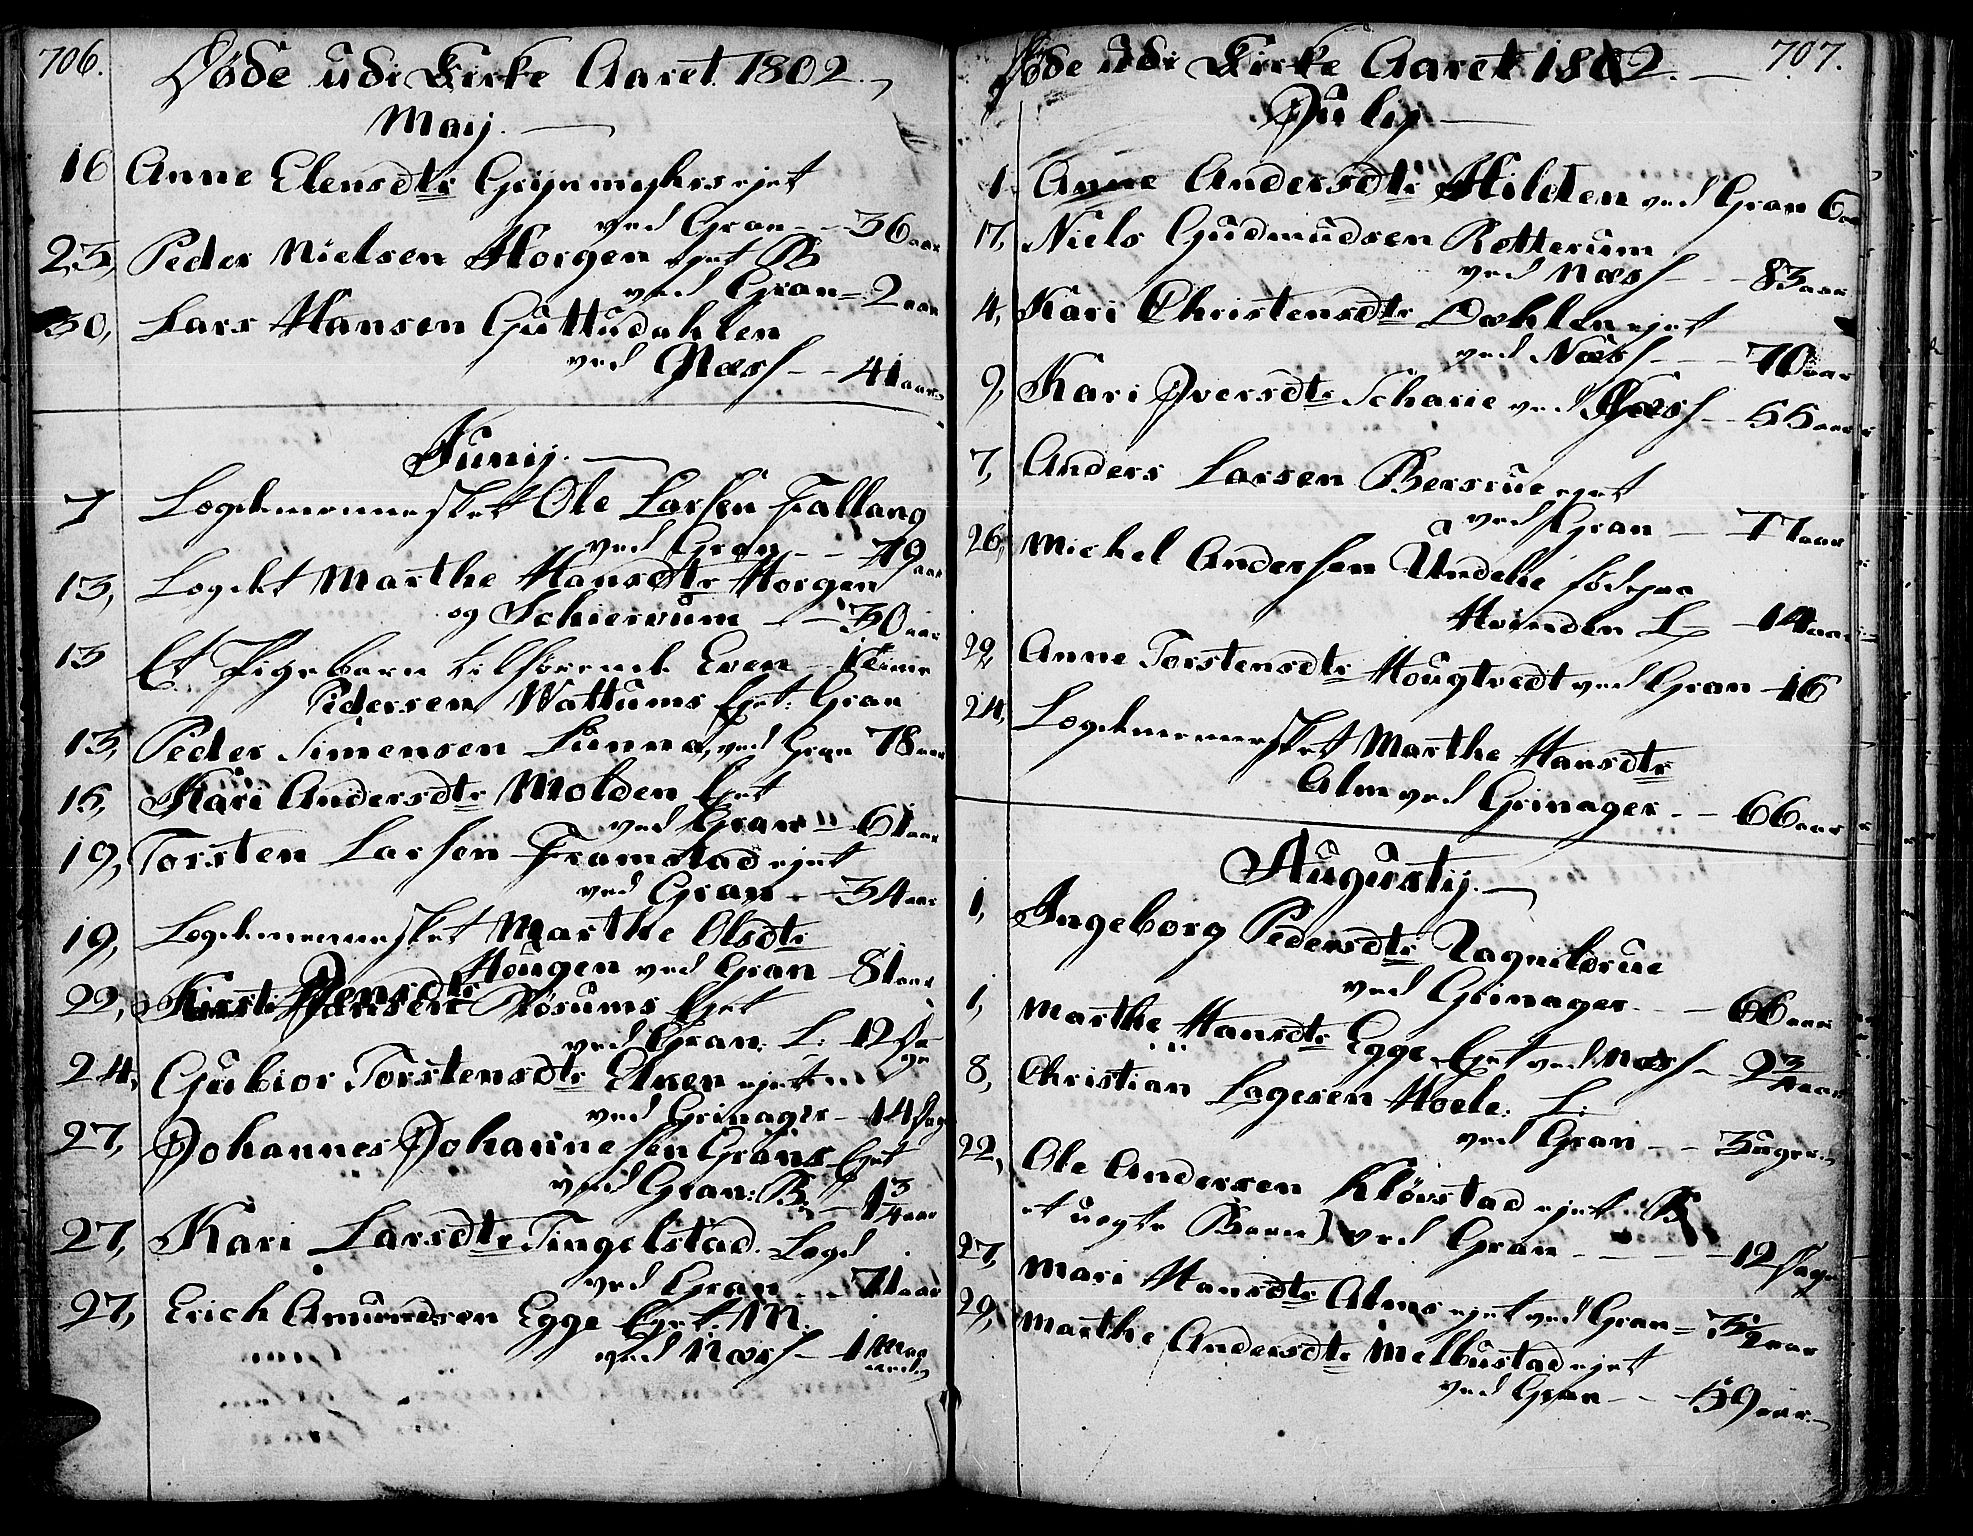 706.
Døde udi Kirke Aaret 1802.
Maij.
16 Anne Elensdtr ejet
ved Gran - 36 aar
23, Peder Nielsen Horgen ejet B
ved Gran = 2 aar
30, Lars Hansen Guttudahlen
ved Næss - - 41 aar
Junij.
7 Logdemennesket Ole Larsen Fallang
ved Gran - - 79 aar
13, Logdt Marthe Hansdtr Horgen
og Schiervum - - 30 aar
13 Et Pigebarn tilhørende Even - 1 Time
Pedersen Wattums Ejet: Gran
13, Peder Simensen Lunna, ved Gran 78 aar
16, Kari Andersdtr Molden Ejet
ved Gran - 61 aar
19, Torsten Larsen Framstad ejet
ved Gran - 34 aar
19, Logdemennesket Marthe Olsdtr
Hougen ved Gran - 81 aar
22, Kirsti Jensdtr Røsums Ejet
ved Gran. L: 12 Da
ge
24, Gubior Torstensdtr Elnen ejet
ved Grinager - 14 Dage
27, Johannes Johannesen Grans Ejet
ved Gran: B. - 1 3/4 aar
27, Kari Larsdtr Tingelstad. Logd
ved Gran - - 71 aar
27, Erich Amundsen Egge Ejet. M.
ved Næss - 1 Maa
aned
707.
Døde udi Kirke Aaret 1802.
Julij
1. Anne Andersdtr Hilden ved Gran 6 aar
17, Niels Gudmudsen Rotterum
ved Næss - - 83 aar
4, Kari Christensdtr Dæhlen ejet
ved Næss - - - 70 aar
9, Kari Iversdtr Scharie ved Næss - 55 aar
7, Anders Larsen Bersrue ejet
ved Gran - 77 aar
26, Michel Andersen Undelie fødepaa
Hvinden L - 14 aar
22, Anne Torstensdtr Hougtvedt ved Gran - 16
24, Logdemennesket Marthe Hansdtr
Alm ved Grinager. - - 66 aar
Augustij.
1, Ingeborg Pedersdtr Ragnildrue
ved Grinager - - 66 aar
1, Marthe Hansdtr Egge Ejet ved Næss - 2 3/4 aar
8, Christian Lagesen Hoele: L:
ved Gran - - 3 uger
22, Ole Andersen Kløvstad ejet B
et uegte Barn) ved Gran - - - - 12 Dage
27, Mari Hansdtr Alms ejet ved Gran = 3 1/2 aar
29, Marthe Andersdtr Melbustad ejet
ved Gran - - 59 aar